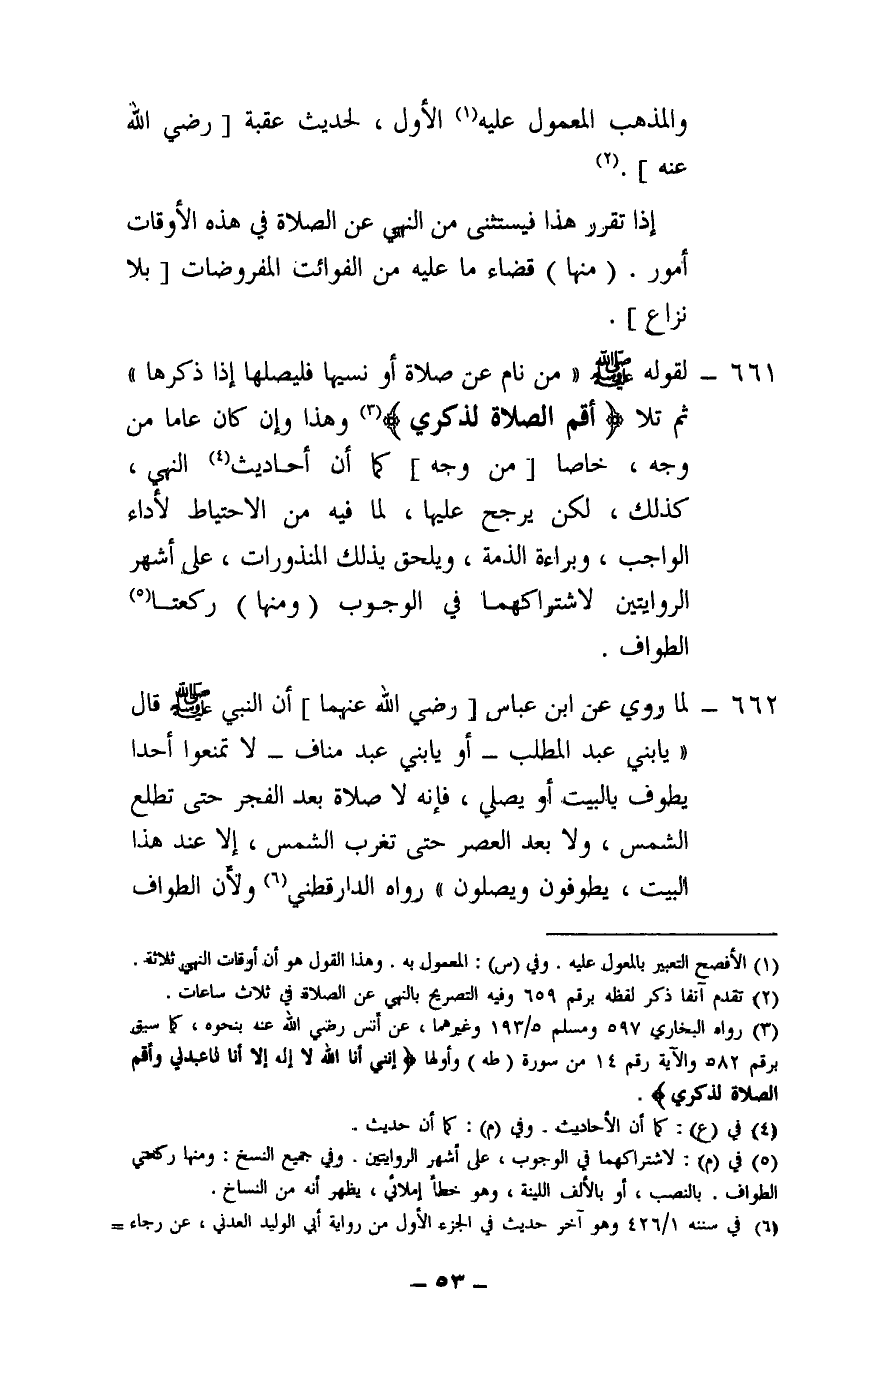 والمذهب المعمول عليه(١) الأول ، لحديث عقبة [ رضي الله
عنه ] .(٢)
إذا تقرر هذا فيستثنى من النهي عن الصلاة في هذه الأوقات
أمور . ( منها ) قضاء ما عليه من الفوائت المفروضات [ بلا
نزاع ] .
٦٦١ – لقوله ﷺ « من نام عن صلاة أو نسيها فليصلها إذا ذكرها »
ثم تلا ﴿ أقم الصلاة لذكري ﴾(٣) وهذا وإن كان عاما من
وجه ، خاصا [ من وجه ] كما أن أحاديث(٤) النهي ،
كذلك ، لكن يرجح عليها ، لما فيه من الاحتياط لأداء
الواجب ، وبراءة الذمة ، ويلحق بذلك المنذورات ، على أشهر
الروايتين لاشتراكهما في الوجوب ( ومنها ) ركعتا(٥)
الطواف .
٦٦٢ – لما روي عن ابن عباس [ رضي الله عنهما ] أن النبي ﷺ قال
« يابني عبد المطلب – أو يابني عبد مناف – لا تمنعوا أحدا
يطوف بالبيت أو يصلي ، فإنه لا صلاة بعد الفجر حتى تطلع
الشمس ، ولا بعد العصر حتى تغرب الشمس ، إلا عند هذا
البيت ، يطوفون ويصلون » رواه الدارقطني(٦) ولأن الطواف
(١) الأفصح التعبير بالمعول عليه . وفي (س) : المعمول به . وهذا القول هو أن أوقات النهي ثلاثة .
(٢) تقدم آنفا ذكر لفظه برقم ٦٥٩ وفيه التصريح بالنهي عن الصلاة في ثلاث ساعات .
(٣) رواه البخاري ٥٩٧ ومسلم ١٩٣/٥ وغيرهما ، عن أنس رضي الله عنه بنحوه ، كما سبق
برقم ٥٨٢ والآية رقم ١٤ من سورة ( طه ) وأولها ﴿ إنني أنا الله لا إله إلا أنا فاعبدني وأقم
الصلاة لذكري ﴾ .
(٤) في (ع) : كما أن الأحاديث . وفي (م) : كما أن حديث .
(٥) في (م) : لاشتراكهما في الوجوب ، على أشهر الروايتين . وفي جميع النسخ : ومنها ركعتي
الطواف . بالنصب ، أو بالألف اللينة ، وهو خطأ إملائي ، يظهر أنه من النساخ .
(٦) في سننه ٤٢٦/١ وهو آخر حديث في الجزء الأول من رواية أبي الوليد العدني ، عن رجاء =
– ٥٣ –